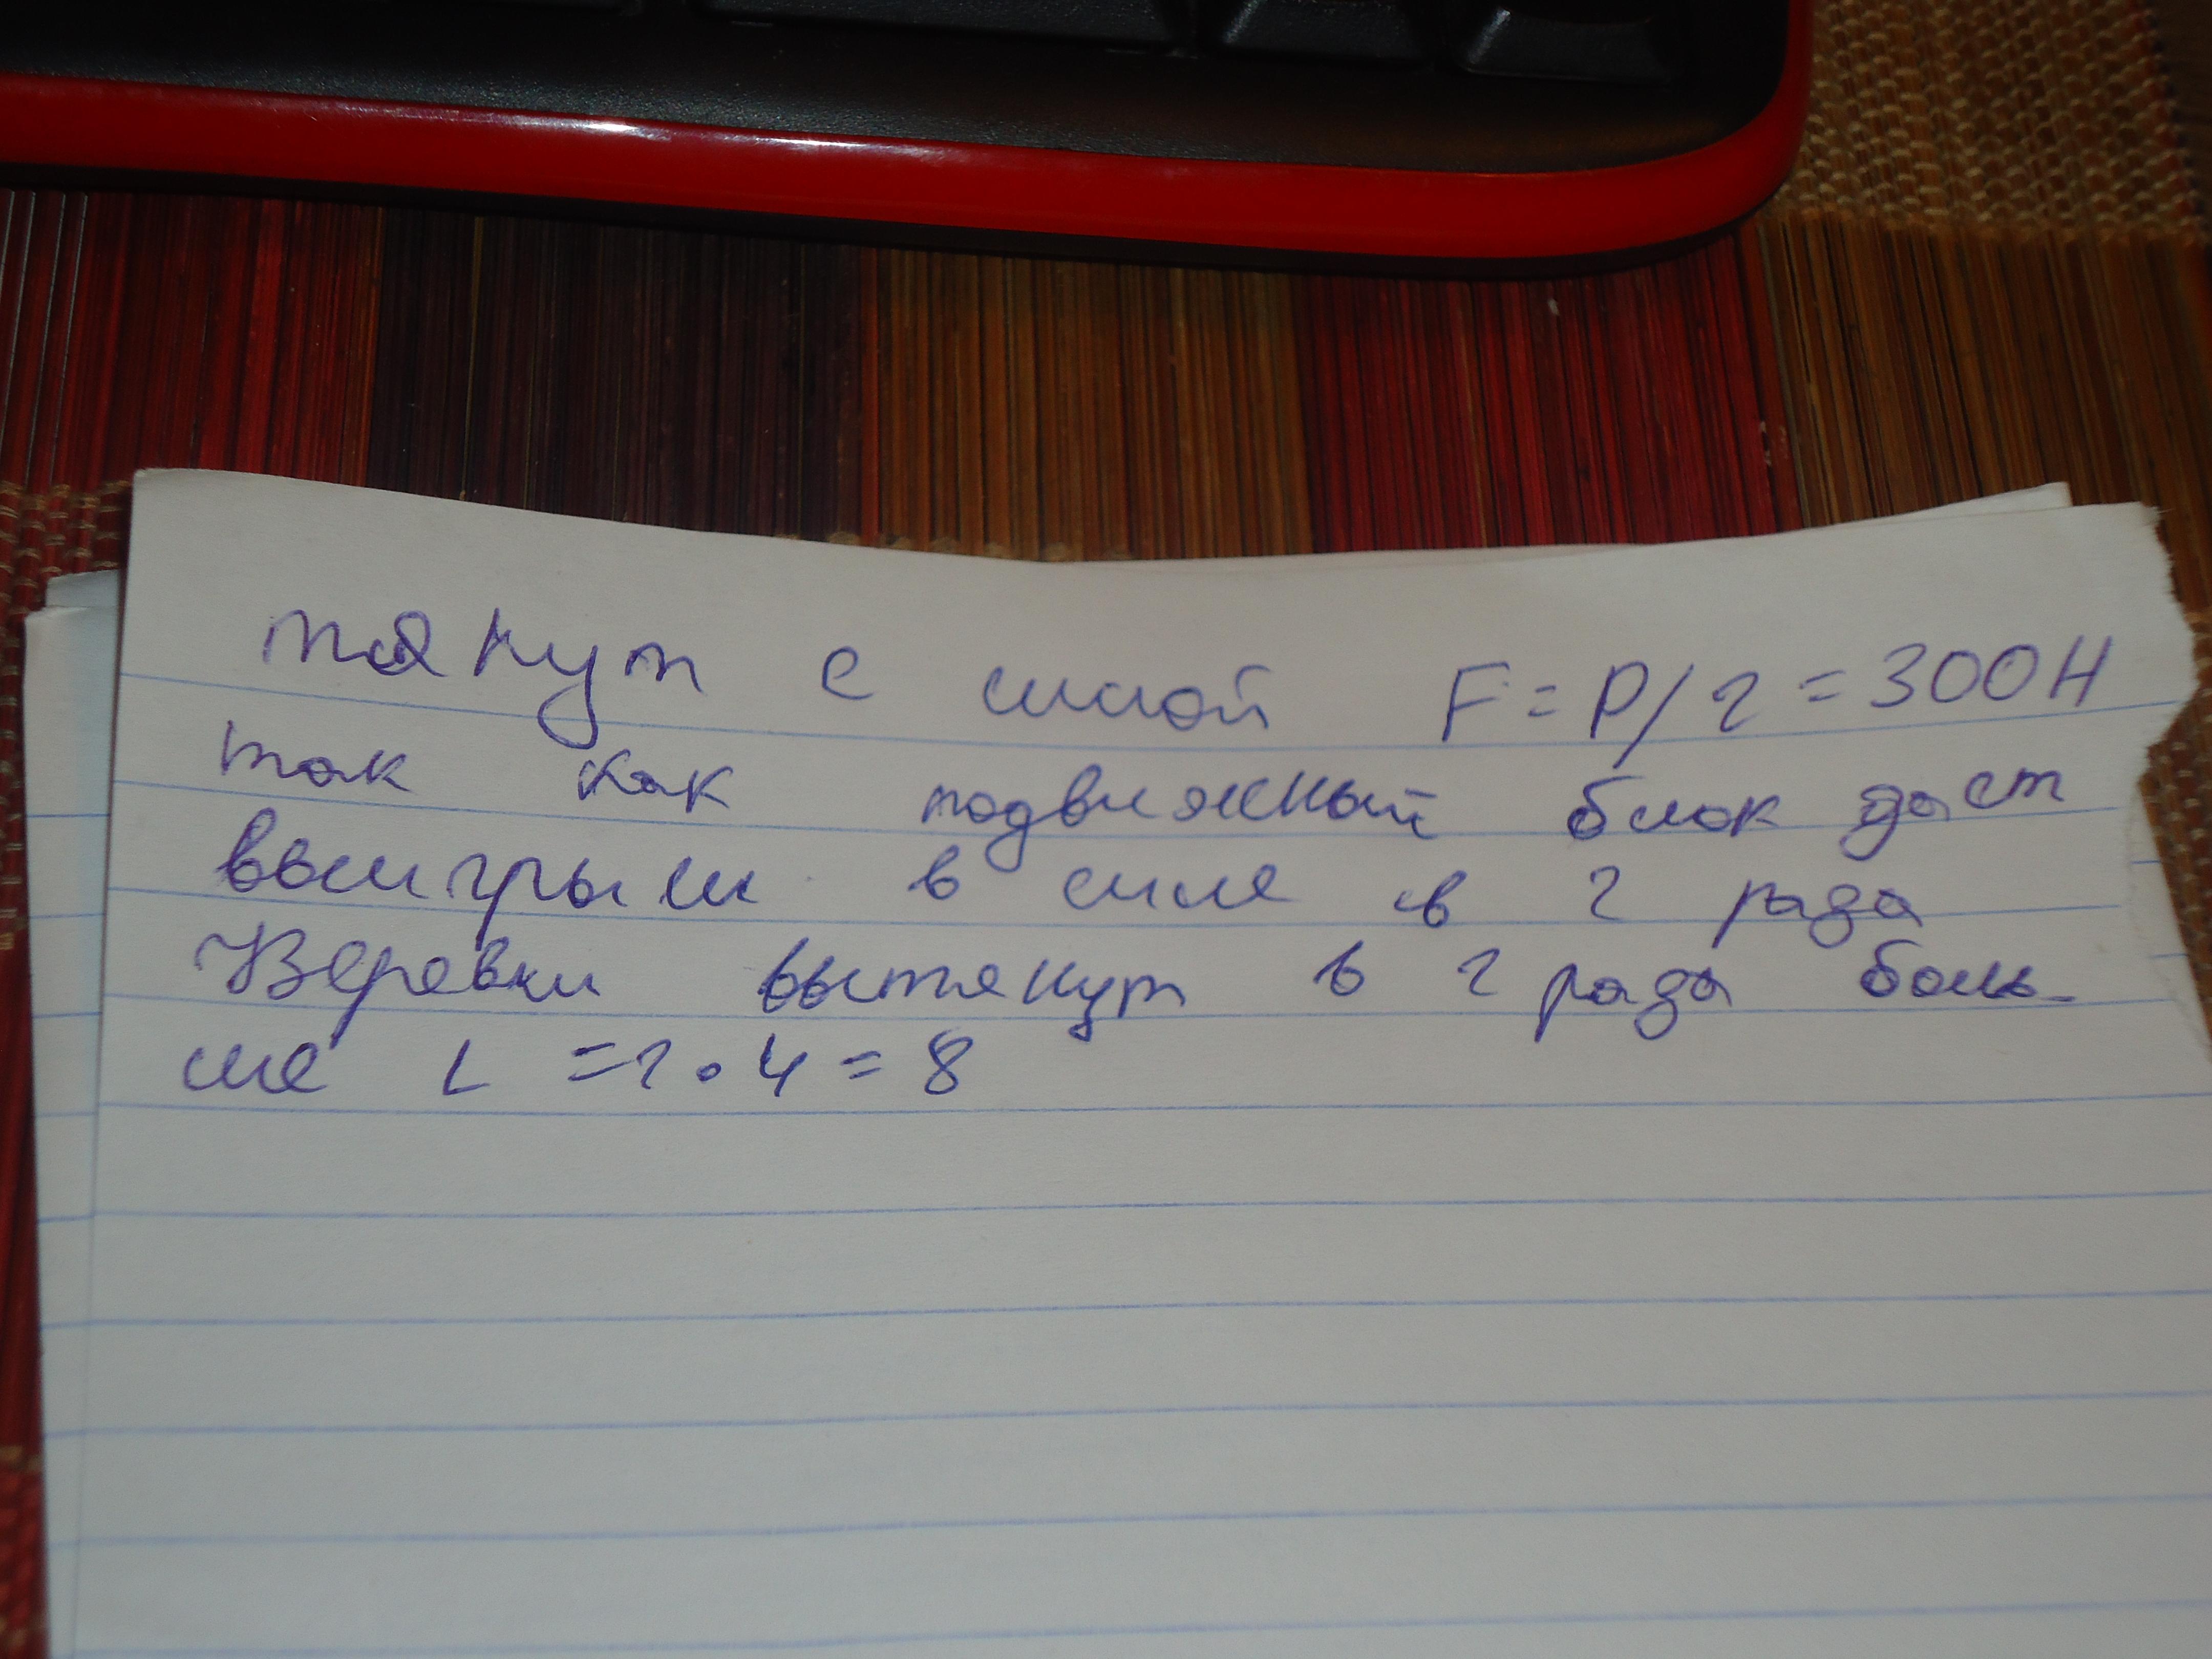 тянут с силой F = P/2 = 300Н
так как подвижный блок даст
выигрыш в силе в 2 раза
Веревки вытянут в 2 раза боль-
ше L = 2 • 4 = 8